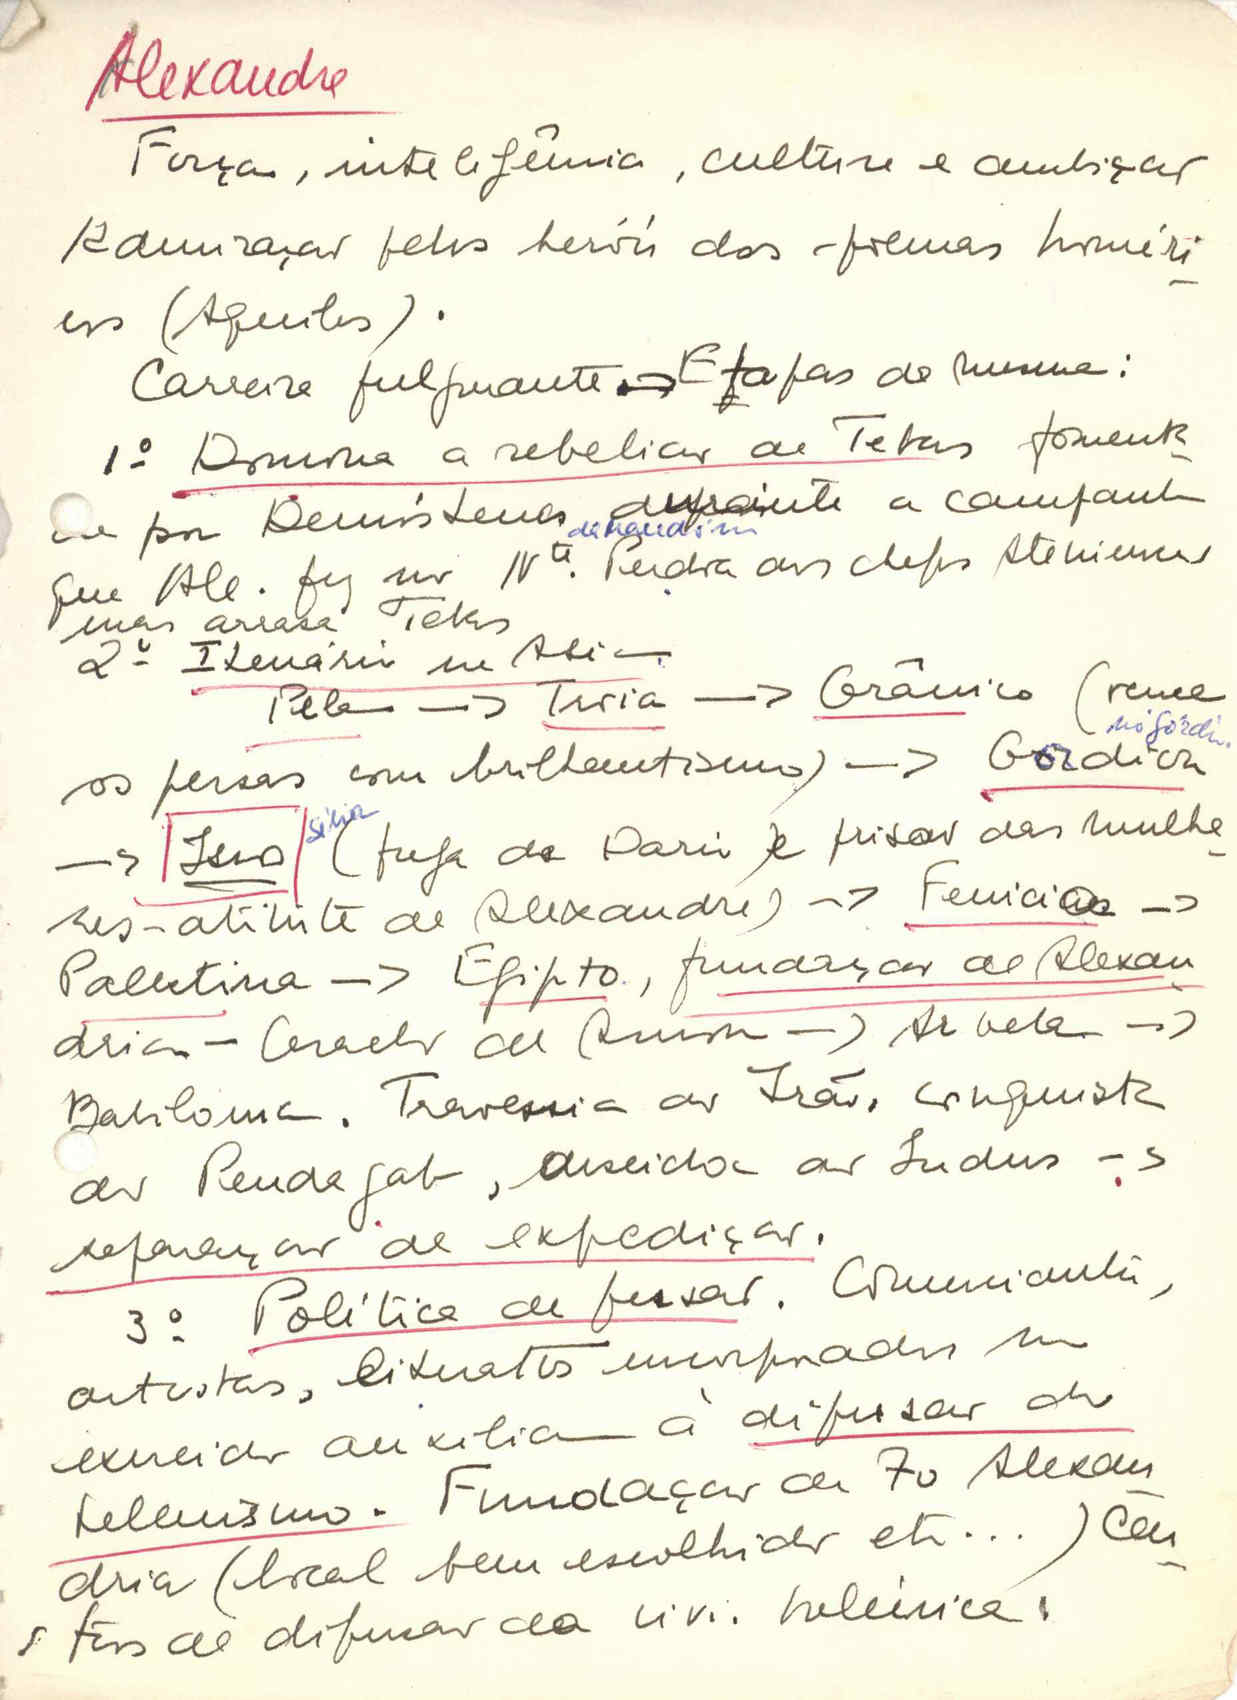 Alexandre
Força, inteligência, cultura e ambição
Admiração pelos heróis dos poemas homéri
cos (Aquiles).
Carreira fulgurante → Etapas da mesma:
1º Domina a rebelião de Tebas foment
da por Demóstenes durante a campanha
que Ale. fez no Nte. Perdoa aos chefes Atenienses
mas arrasa Tebas
2º Itenário na Ásia
Pela → Troia → Grânico (vence
nó górdio
os persas com brilhantismo) → Gordion
→ Isso síria (fuga de Dario e prisão das mulhe
res - atitute de Alexandre) → Fenicia →
Palestina → Egipto, fundação de Alexan
dria - Oraculo de Amon → Arbela →
Babilonia. Travessia do Irão, conquista
do Pendagab, descida do Indus →
separação da expedição.
3º Política de fusão. Comerciantes,
artistas, literatos incorporados no
exercido auxiliam à difusão do
helenismo. Fundação de 70 Alexan
dria (local bem escolhido etc...) Cen
tros de difusão da civi. helénica.